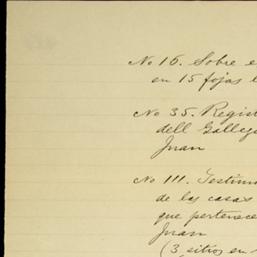 No 16. Sobre e
en 15 fojas l
No 35. Regist
dell Gallego
Juan
No 111. Testimo
de las casas
que pertenece
Juan
(3 sitios en